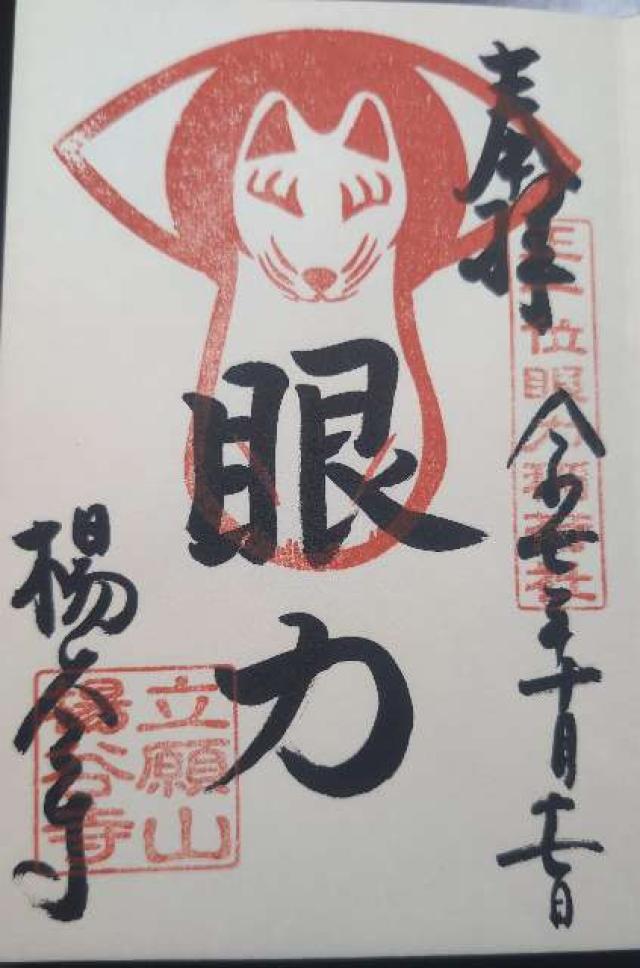 奉拝
正一位眼力稲荷社
令和七年十月十七日
眼力
立願山
楊谷寺
楊谷寺